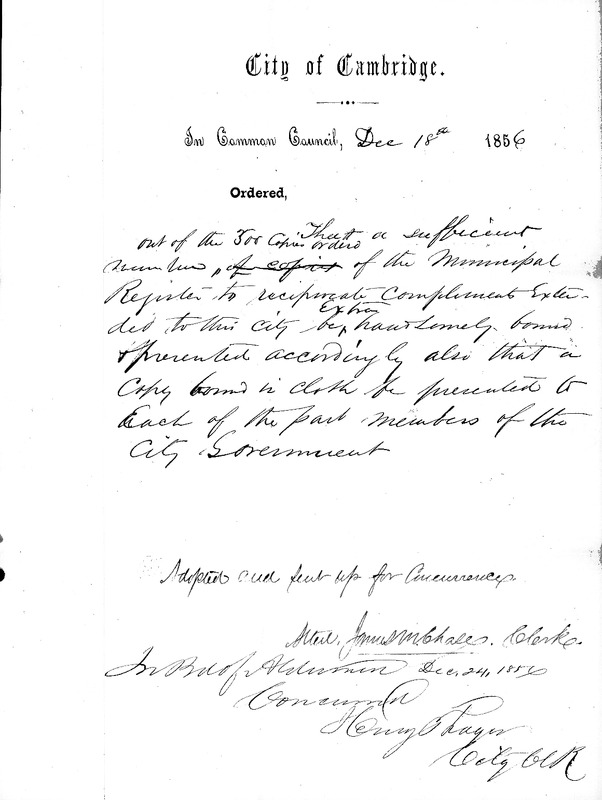 City of Cambridge.
In Common Council, Dec 18th 1856
Ordered,
That a sufficient
out of the 500 Copies orderd
number of copies of the Municipal
Register to reciprocate Compliments Exten-
Extra
ded to this City be handsomely bound
& presented accordingly also that a
Copy bound in cloth be presented to
Each of the past members of the
City Government
Adopted and sent up for Concurrence.
Attest. James M. Chase. Clerk.
In Bd of Aldermen Dec. 24, 1856
Concurred
Henry Thayer
City Clk